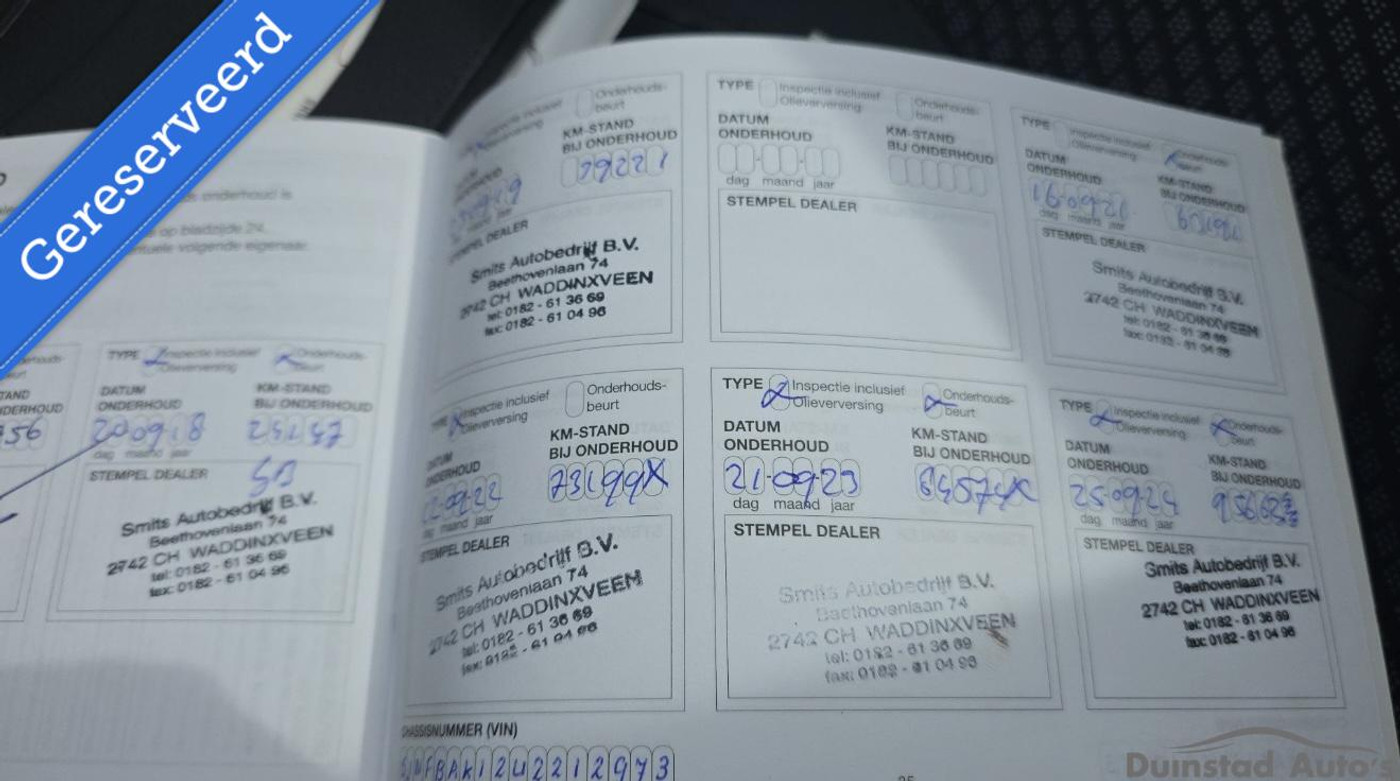 Gereserveerd
onderhoud is
op bladzijde 24,
volgende eigenaar
TYPE Inspectie inclusief Olieverversing Onderhouds-
DATUM ONDERHOUD KM-STAND BIJ ONDERHOUD
20 09 18
dag maand jaar
STEMPEL DEALER
Smits Autobedrijf B.V.
Beethovenlaan 74
2742 CH WADDINXVEEN
tel: 0182 - 61 36 69
fax: 0182 - 61 04 96
Onderhouds-
beurt
KM-STAND
BIJ ONDERHOUD
29221
DEALER
Smits Autobedrijf B.V.
Beethovenlaan 74
2742 CH WADDINXVEEN
tel: 0182 - 61 36 69
fax: 0182 - 61 04 96
TYPE Inspectie inclusief Onderhouds-
Olieverversing beurt
DATUM KM-STAND
ONDERHOUD BIJ ONDERHOUD
dag maand jaar
STEMPEL DEALER
TYPE Inspectie inclusief Onderhouds-
Olieverversing beurt
DATUM KM-STAND
ONDERHOUD BIJ ONDERHOUD
dag maand jaar
STEMPEL DEALER
Smits Autobedrijf B.V.
Beethovenlaan 74
2742 CH WADDINXVEEN
tel: 0182 - 61 36 69
fax: 0182 - 61 04 96
Inspectie inclusief Onderhouds-
Olieverversing beurt
KM-STAND
ONDERHOUD BIJ ONDERHOUD
09 22 73199X
maand jaar
STEMPEL DEALER
Smits Autobedrijf B.V.
Beethovenlaan 74
2742 CH WADDINXVEEN
tel: 0182 - 61 36 69
fax: 0182 - 61 04 96
TYPE Inspectie inclusief Onderhouds-
Olieverversing beurt
DATUM KM-STAND
ONDERHOUD BIJ ONDERHOUD
21-09-23
dag maand jaar
STEMPEL DEALER
Smits Autobedrijf B.V.
Beethovenlaan 74
2742 CH WADDINXVEEN
tel: 0182 - 61 36 69
fax: 0182 - 61 04 96
TYPE Inspectie inclusief Onderhouds-
Olieverversing beurt
DATUM KM-STAND
ONDERHOUD BIJ ONDERHOUD
25 09 24
dag maand jaar
STEMPEL DEALER
Smits Autobedrijf B.V.
Beethovenlaan 74
2742 CH WADDINXVEEN
tel: 0182 - 61 36 69
fax: 0182 - 61 04 96
CHASSISNUMMER (VIN)
Duinstad Auto's